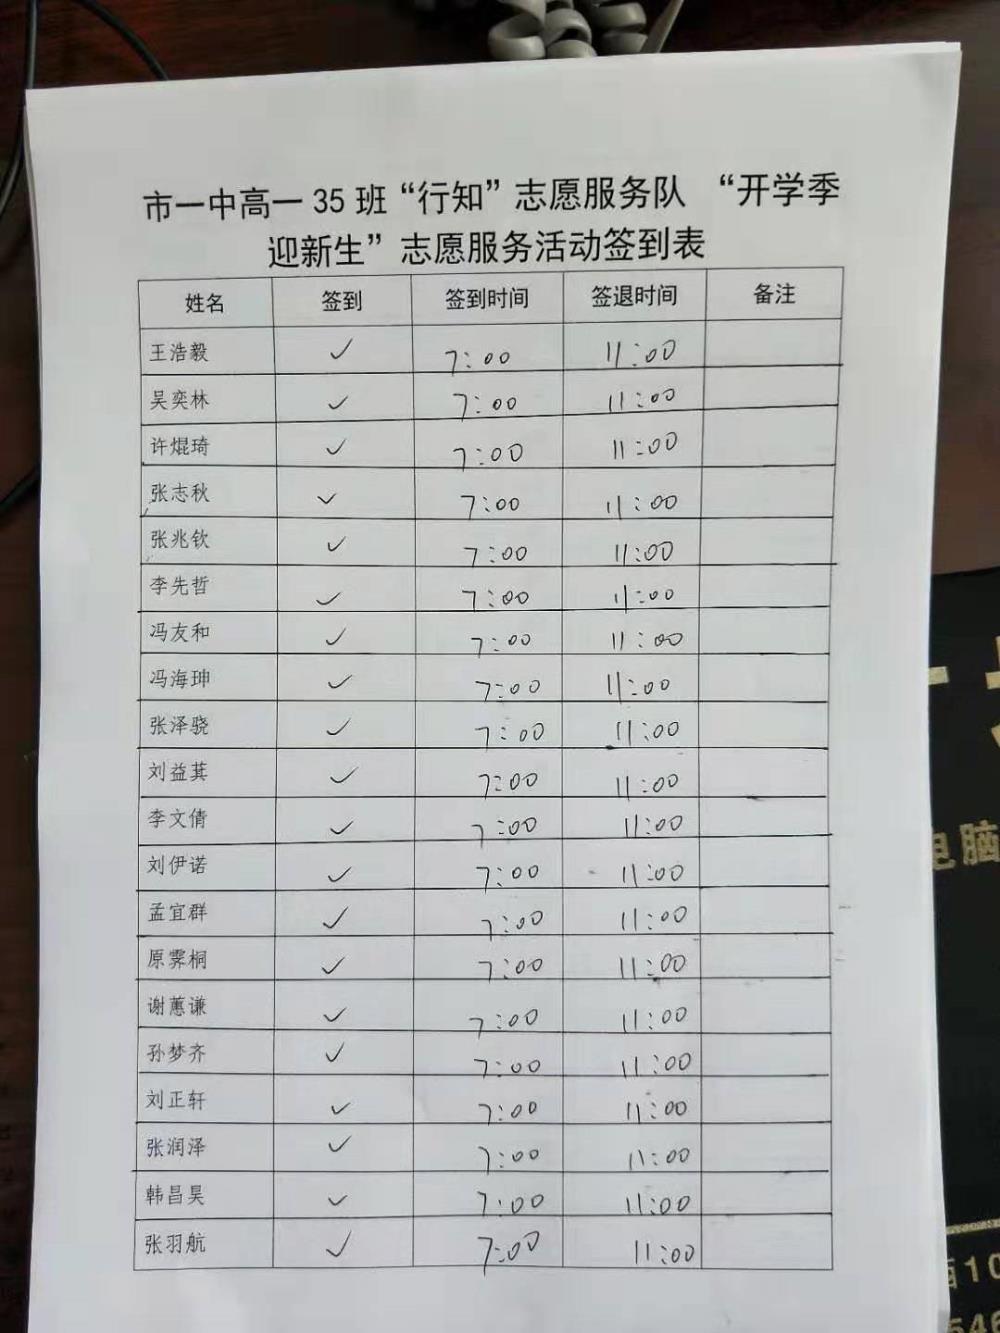 市一中高一 35 班“行知”志愿服务队 “开学季
迎新生”志愿服务活动签到表
姓名 签到 签到时间 签退时间 备注
王浩毅 ✓ 7:00 11:00
吴奕林 ✓ 7:00 11:00
许焜琦 ✓ 7:00 11:00
张志秋 ✓ 7:00 11:00
张兆钦 ✓ 7:00 11:00
李先哲 ✓ 7:00 11:00
冯友和 ✓ 7:00 11:00
冯海珅 ✓ 7:00 11:00
张泽骁 ✓ 7:00 11:00
刘益萁 ✓ 7:00 11:00
李文倩 ✓ 7:00 11:00
刘伊诺 ✓ 7:00 11:00
孟宜群 ✓ 7:00 11:00
原霁桐 ✓ 7:00 11:00
谢蕙谦 ✓ 7:00 11:00
孙梦齐 ✓ 7:00 11:00
刘正轩 ✓ 7:00 11:00
张润泽 ✓ 7:00 11:00
韩昌昊 ✓ 7:00 11:00
张羽航 ✓ 7:00 11:00
电脑
10
546